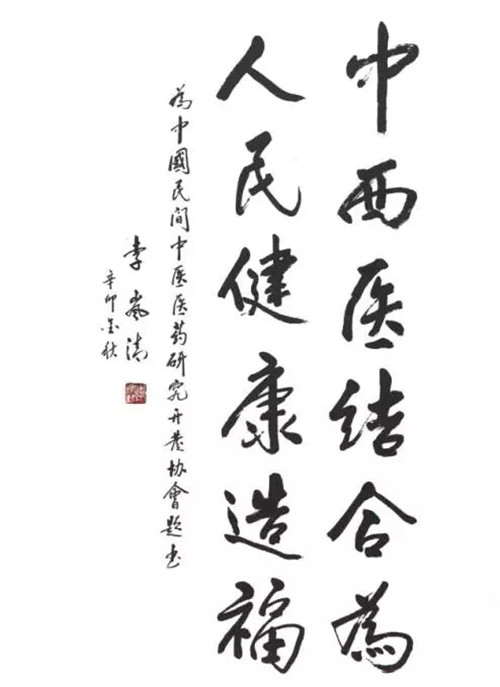 中西医结合為
人民健康造福
為中國民间中医医药研究开发协會题书
李岚清
辛卯金秋